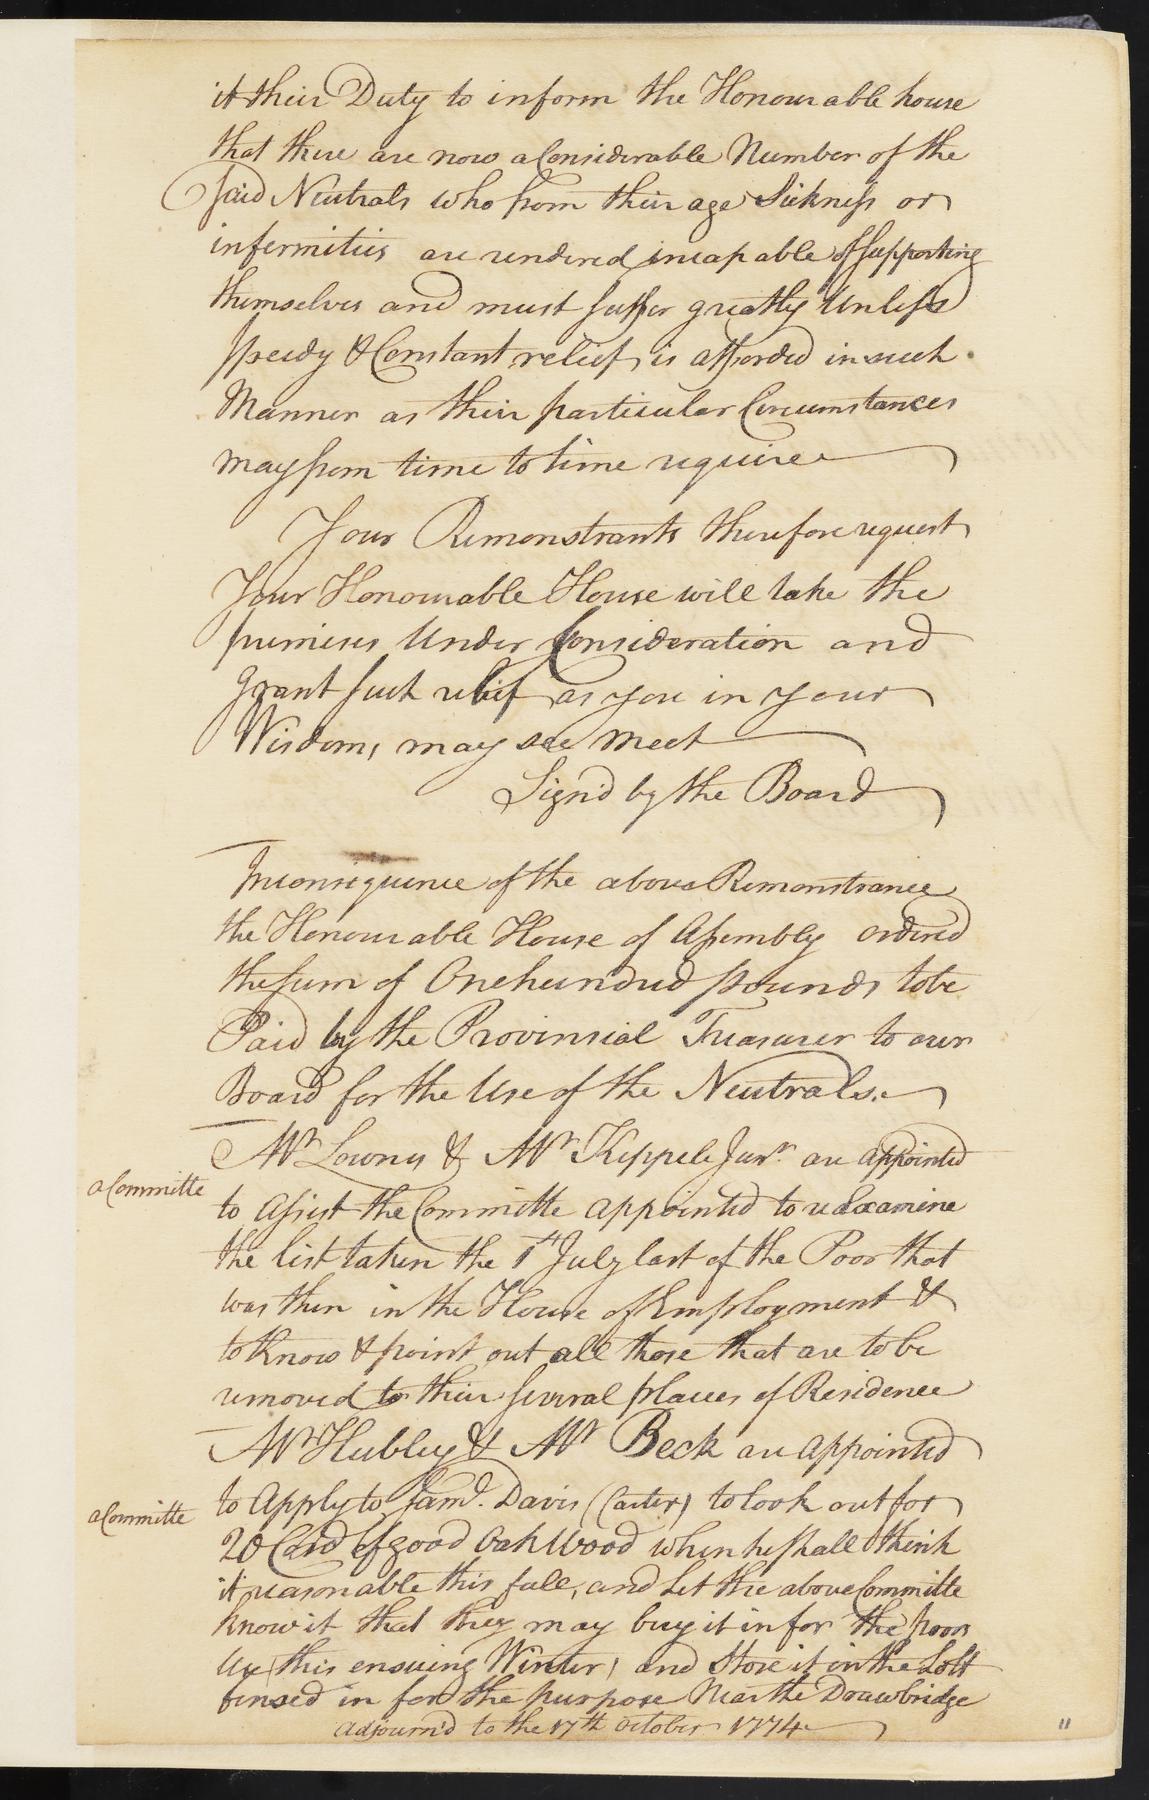 it their Duty to inform the Honourable house
that there are now a Considerable Number of the
said Neutrals who from their age Sickness or
infermities are rendered incapable of supporting
themselves and must suffer greatly Unless
speedy & Constant relief is afforded in such
Manner as their particular Circumstances
may from time to time require
Your Remonstrants therefore request
Your Honourable House will take the
premises Under Consideration and
grant such relief as you in your
Wisdom, may see meet
Sign'd by the Board
Inconsequence of the above Remonstrance
the Honourable House of Assembly ordered
the sum of Onehundred pounds to be
Paid by the Provinsial Treasurer to our
Board for the Use of the Neutrals.
Mr Lownes & Mr Keppele Junr. are appointed
a Committe
to assist the Committe appointed to reexamine
the list taken the 1st July last of the Poor that
was then in the House of Employment &
to know & point out all those that are to be
removed to their several places of Residence
Mr Hubley & Mr Beck are appointed
a Committe
to Apply to Saml. Davis (Carter) to look out for
20 Cord of good Oak Wood when he shall think
it reasonable this fall, and Let the above Committe
know it that they may buy it in for the poors
Use this ensuing Winter, and Store it in the Lott
fensed in for the purpose Near the Drawbridge
adjourn'd to the 17th October 1774
11